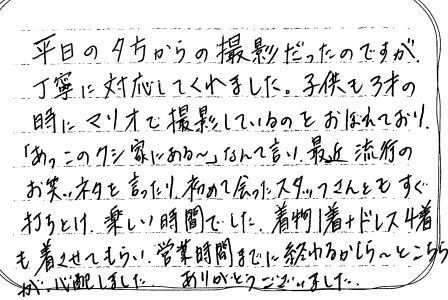 平日の夕方からの撮影だったのですが、
丁寧に対応してくれました。子供も3才の
時にマリオで撮影しているのをおぼえており、
「あっこのクシ家にある〜」なんて言い、最近流行の
お笑いネタを言ったり、初めて会ったスタッフさんともすぐ
打ちとけ、楽しい時間でした。着物1着+ドレス4着
も着させてもらい、営業時間までに終わるかしら〜とこちら
が、心配しました。ありがとうございました。